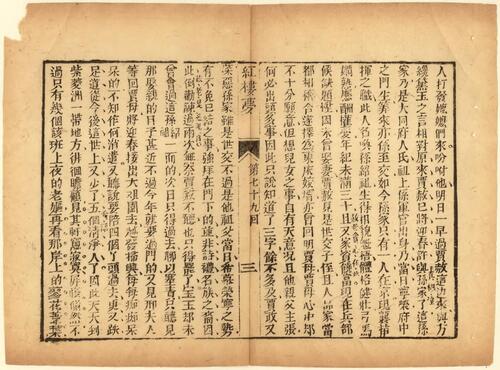 人打發嬤嬤們來吩咐他明日一早過賈赦這边來與方
纔黛玉之言相對原來賈赦已將迎春許與孫家了這孫
家乃是大同府人氏祖上係軍官出身乃當日寧榮府中
之門生算來亦係至交如今孫家只有一人在京現襲指
揮之職此人名喚孫紹祖生得相貌魁梧體格健壯弓馬
嫻熟應酬權變年紀未滿三十且又家資饒富現在兵部
候缺題陞因未曾娶妻賈赦見是世交子侄且人品家當
都相稱合遂擇爲東床嬌婿亦曾回明賈母賈母心中却
不十分願意但想兒女之事自有天意况且他親父主張
何必出頭多事因此只說知道了三字餘不多及賈政又
紅樓夢 第七十九回 三
深惡孫家雖是世交不過是他祖父當日希慕榮寧之勢
有不能了結之事強拜在門下的並非詩禮名族之裔因
此倒勸諫過兩次無奈賈赦不聽也只得罷了寶玉却未
曾會過這孫紹祖一面的次日只得過去聊以塞責只聽見
那娶親的日子甚近不過今年就要過門的又見邢夫人
等回了賈母將迎春接出大觀園去越發掃興每每痴痴呆
呆的不知作何消遣又聽說要陪四個丫頭過去更又跌
足道從今後這世上又少了五個清淨人了因此天天到
紫菱洲一帶地方徘徊瞻顧見其軒窗寂寞屏帳翛然不
過只有幾個該班上夜的老嫗再看那岸上的蓼花葦葉